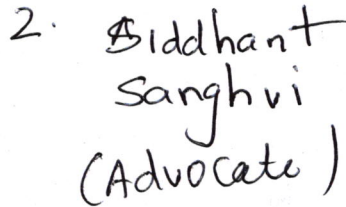 2. Siddhant
Sanghvi
(Advocate)